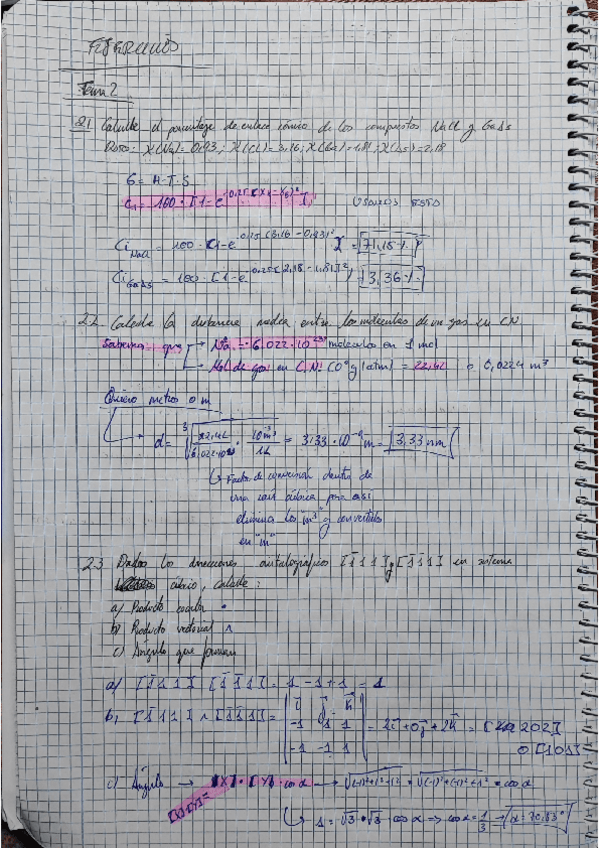 EJERCICIOS
Tema 2
2.1 Calcula el porcentaje de enlace iónico de los compuestos NaCl y GaAs
Dato: X(Na)=0,93; X(Cl)=3,16; X(Ga)=1,81; X(As)=2,18
G = H-T·S
Ci = 100·[1-e^-0,25(Xa-Xb)²] Usamos esto
Ci NaCl = 100·[1-e^-0,25(3,16-0,93)²] = 71,15%
Ci GaAs = 100·[1-e^-0,25(2,18-1,81)²] = 3,36%
2.2 Calcula la distancia media entre las moléculas de un gas en CN
Sabemos que → Na = 6,022·10^23 moléculas en 1 mol
→ Mol de gas en C.N. (0° y 1 atm) = 22,4L o 0,0224 m³
Quiero metros o m
d = ³√(22,4L / 6,022·10^23 · 10^-3 m³ / 1L) = 3,33·10^-9 m = 3,33 nm
↳ Factor de conversión dentro de
una raíz cúbica para así
eliminar los "m³" y convertirlos
en "m"
2.3 Dadas las direcciones [1̄11] y [1̄1̄1] en sistema
cúbico, calcula:
a) Producto escalar •
b) Producto vectorial ∧
c) Ángulo que forman
a) [1̄11] [1̄1̄1] = 1-1+1 = 1
i j k
b) [1̄11] ∧ [1̄1̄1] = -1 1 1 = 2i+0j+2k = [202]
-1 -1 1 o [101]
c) Ángulo → [X]·[Y]·cos α → √(-1)²+1²+1² · √(-1)²+(-1)²+1² · cos α
[X][Y]=
↳ 1 = √3·√3·cos α ⇒ cos α = 1/3 → α = 70,53°